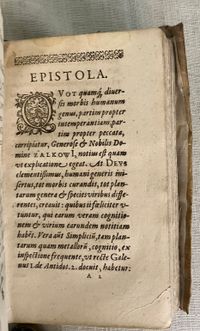 EPISTOLA.
QVOT quamq́; diuer-
sis morbis humanum
genus, partim propter
intemperantiam, par-
tim propter peccata,
corripiatur, Generose & Nobilis Do-
mine ZALKOWI, notius est quam
vt explicatione egeat. At DEVS
clementissimus, humani generis mi-
sertus, tot morbis curandis, tot plan-
tarum genera & species viribus diffe-
rentes, creauit: quibus si feliciter v-
tuntur, qui earum veram cognitio-
nem & virium earundem notitiam
habẽt. Vera aũt Simpliciũ, tam plan-
tarum quam metallorũ, cognitio, ex
inspectione frequente, vt recte Gale-
nus 1. de Antidot. 2. docuit, habetur:
A 2